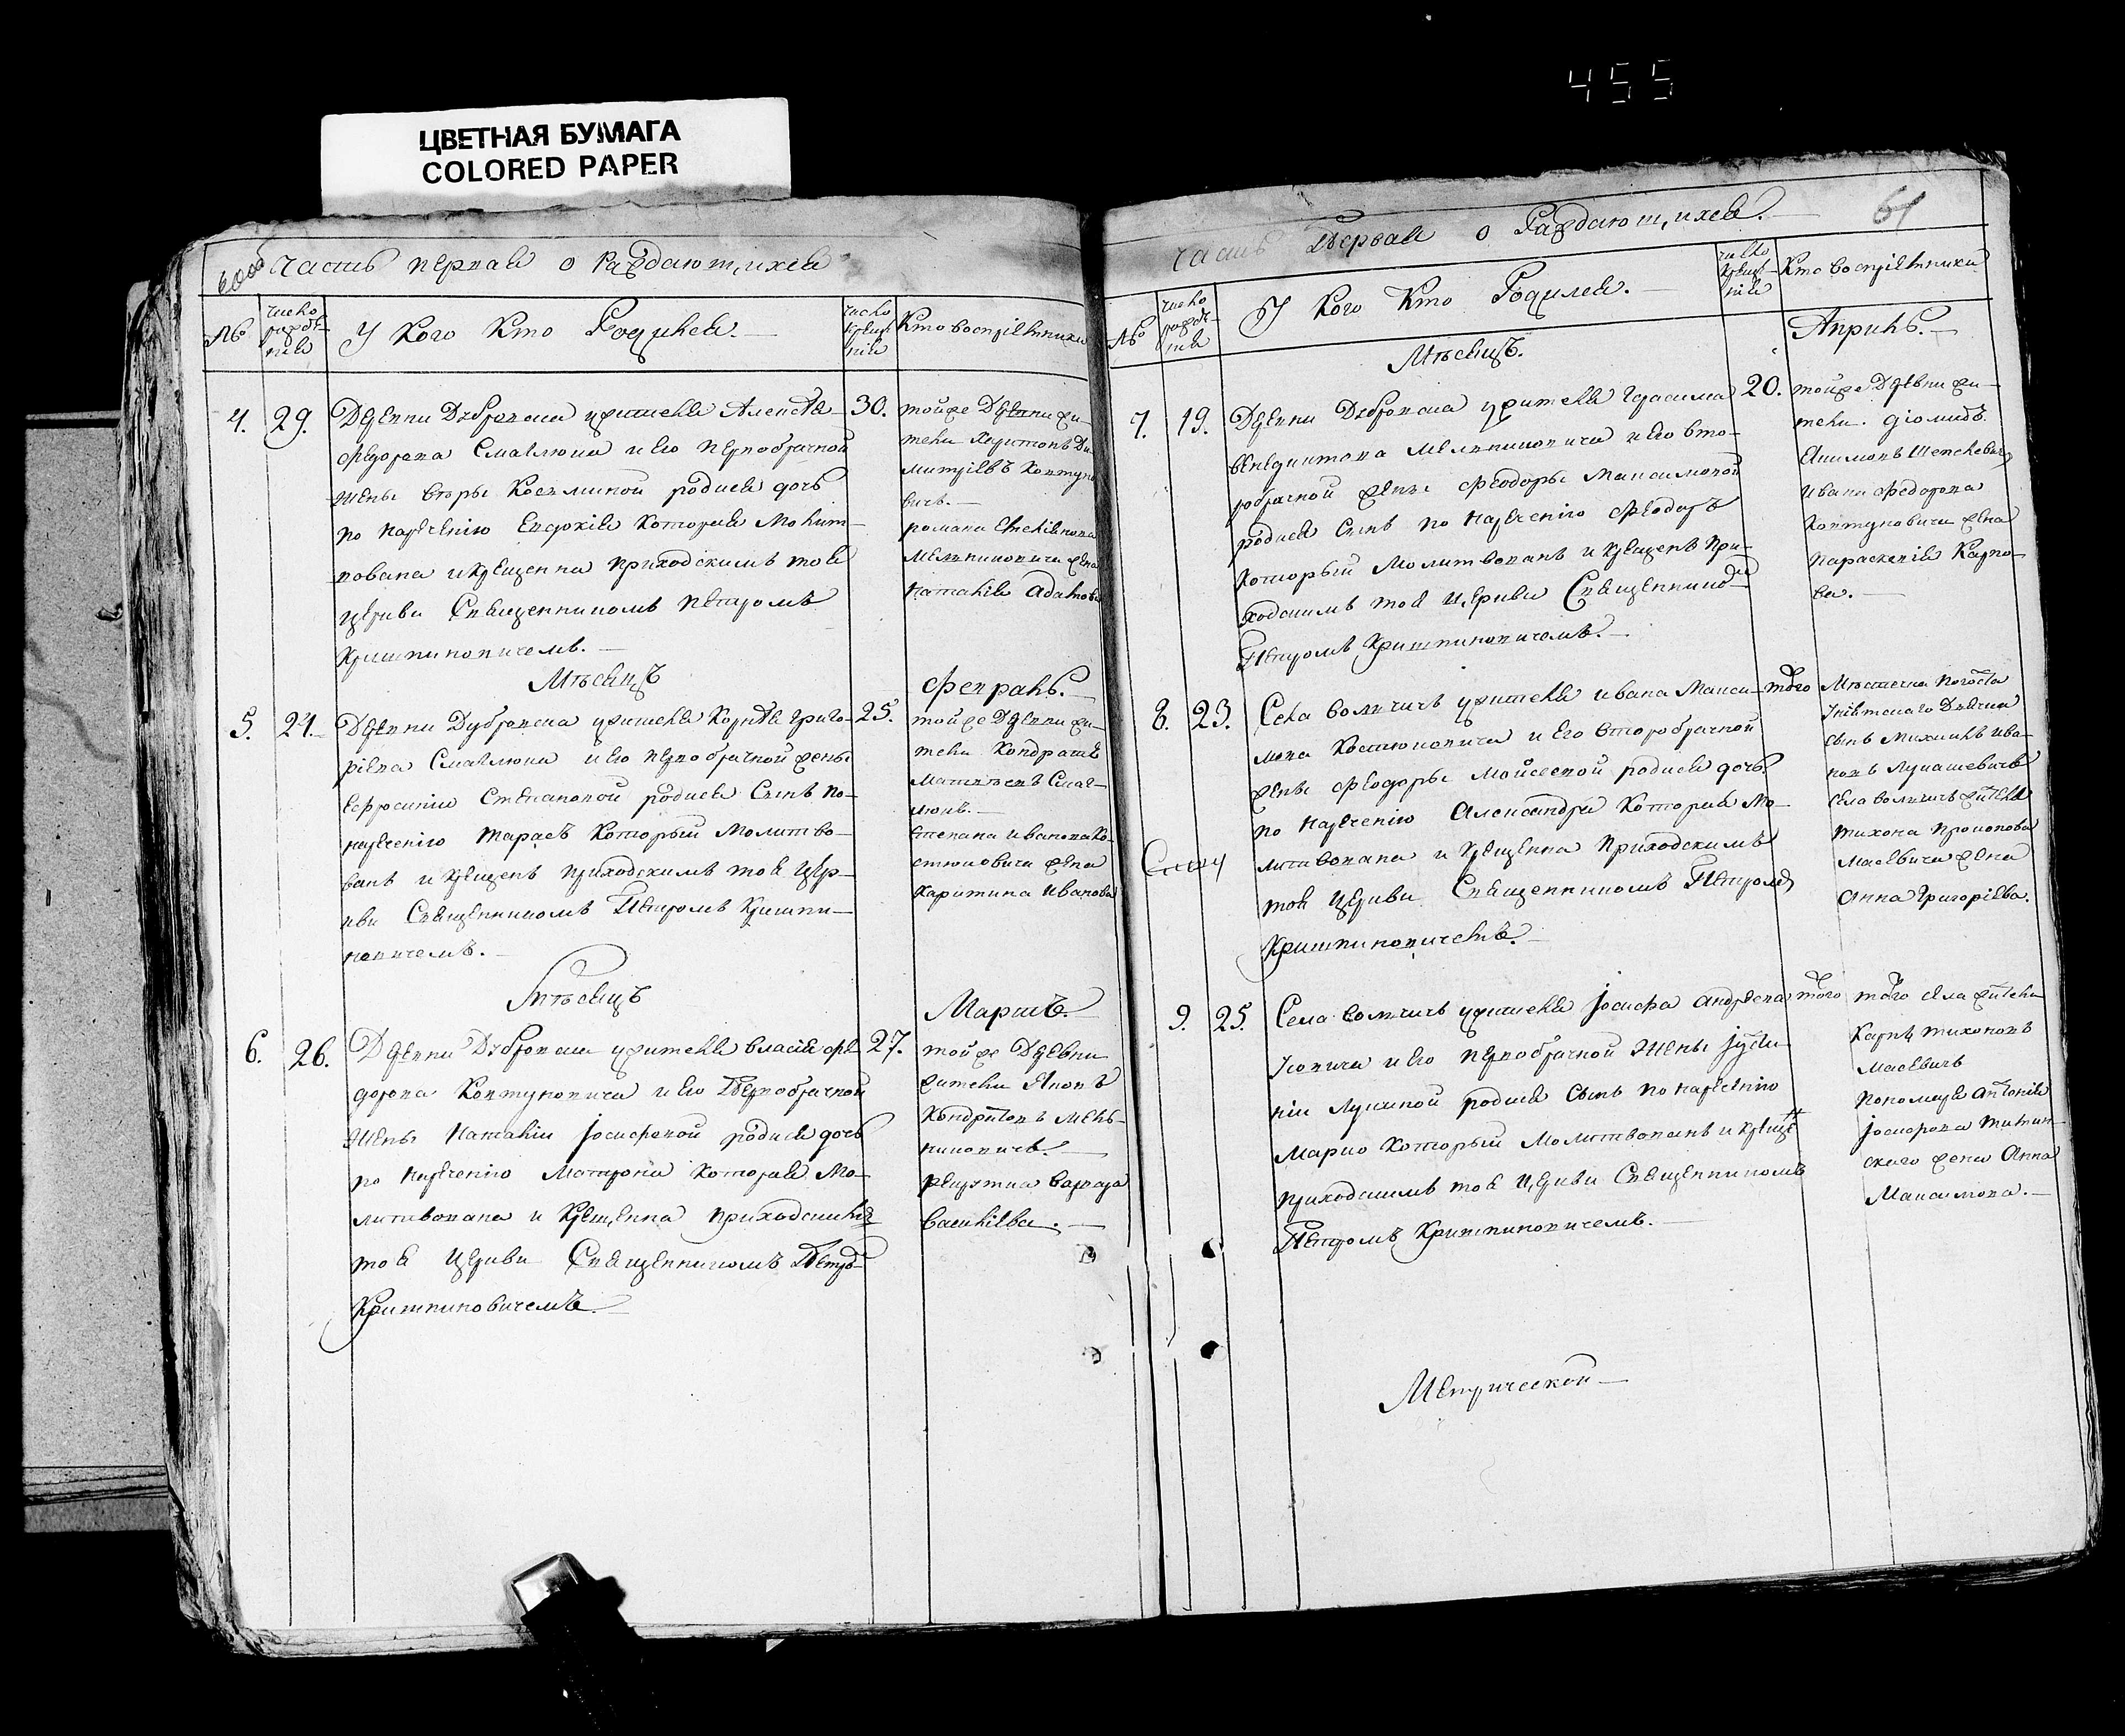 455
ЦВЕТНАЯ БУМАГА
COLORED PAPER
Часть первая о раждающихся
№
число рожде-
нія
У кого кто Родился.
число
креще-
нія
Кто воспріемники
4. 29. Деревни Дубровска жителя Алексѣя
30.
Федорова Смаглюка и его первобрачной
жены
родися дочь
по нареченію Евдокія которая молит-
вована и крещенна приходскимъ тоя
церкви Священникомъ Петромъ
Криштиновичемъ.
тойже деревни жи-
тели Харитонъ Ди-
митріевъ Ковтуно-
вичъ.
романа
жена
Наталія Адамова
Мѣсяцъ Февраль.
5. 24. Деревни Дубровска жителя Корнѣя Григо-
25.
ріева Смаглюка и его первобрачной жены
Ефросиніи Степановой родися сынъ по
нареченію Тарасъ который молитво-
ванъ и крещенъ приходскимъ тоя цер-
кви Священникомъ Петромъ Кришти-
новичемъ.
тойже деревни жи-
тели Кондратъ
Матвѣевъ Смаг-
люкъ.
Степана Иванова Ко-
стюковича жена
Харитина Иванова
Мѣсяцъ Мартъ.
6. 26. Деревни Дубровска жителя Власія Фе-
27.
дорова Ковтуновича и его первобрачной
жены Наталіи Іосифовой родися дочь
по нареченію Матрона которая мо-
литвована и крещенна приходскимъ
тоя церкви Священникомъ Петромъ
Криштиновичемъ.
тойже деревни
жители Яковъ
Кондратовъ Мель-
никовичъ.
рекрутка Варвара
Василіева.
61
Часть Первая о Раждающихся.
№
число
рожде-
нія
У кого кто Родился.
число
креще-
нія
Кто воспріемники
Мѣсяцъ. Априль.
7. 19. Деревни Дубровска жителя Герасима
20.
Венедиктова Мельниковича и его вто-
робрачной жены Феодоры Максимовой
родися сынъ по нареченію Феодоръ
который молитвованъ и крещенъ при-
ходскимъ тоя церкви Священникомъ
Петромъ Криштиновичемъ.
тойже деревни жи-
тели. Діомидъ
Ивана Федорова
Ковтуновича жена
Параскевія Карпо-
ва.
8. 23. Села Волчичъ жителя Ивана Макси-
того
мова Костюковича и его второбрачной
жены Феодоры Мойсеевой родися дочь
по нареченію Александра которая мо-
литвована и крещенна приходскимъ
тоя церкви Священникомъ Петромъ
Криштиновичемъ.
Мѣстечка Погоста
сынъ Михаилъ Ива-
новъ Лукашевичъ
села Волчичъ жителя
Тихона Прокопова
Масевича жена
Анна Григоріева.
9. 25. Села Волчичъ жителя Іосифа Андреева
того
и его первобрачной жены Іусти-
ніи Лукиной родися сынъ по нареченію
Марко который молитвованъ и крещенъ
приходскимъ тоя церкви Священникомъ
Петромъ Криштиновичемъ.
того села жители
Карпъ Тихоновъ
Масевичъ
пономаря Антонія
Іосифова
жена Анна
Максимова.
Метрической